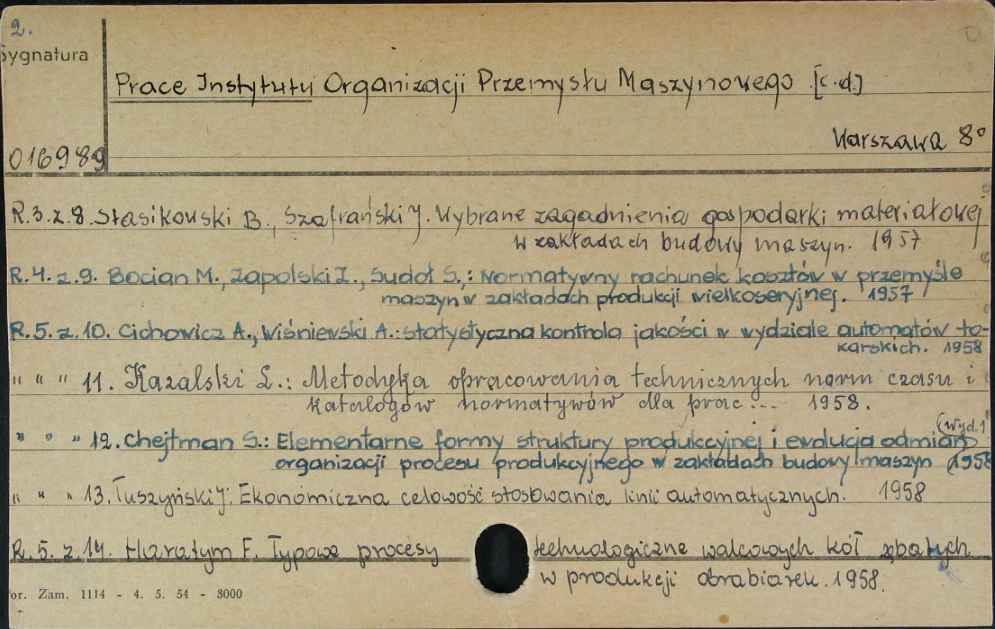 2.
Sygnatura
Prace Instytutu Organizacji Przemysłu Maszynowego [c.d.]
Warszawa 8°
016989
R.3.z.8. Stasikowski B., Szafrański J. Wybrane zagadnienia gospodarki materiałowej
w zakładach budowy maszyn. 1957
R.4.z.9. Bocian M., Zapolski I., Sudoł S.: Normatywny rachunek kosztów w przemyśle
maszyn w zakładach produkcji wielkoseryjnej. 1957
R.5.z.10. Cichowicz A., Wiśniewski A.: Statystyczna kontrola jakości w wydziale automatów to-
karskich. 1958
" " " 11. Kazalski L.: Metodyka opracowania technicznych norm czasu i
katalogów normatywów dla prac... 1958.
(Wyd.1)
" " " 12. Chejtman S.: Elementarne formy struktury produkcyjnej i ewolucja odmian
organizacji procesu produkcyjnego w zakładach budowy maszyn 1958
" " " 13. Tuszyński J. Ekonomiczna celowość stosowania linii automatycznych. 1958
R.5.z.14. Haratym F. Typowe procesy technologiczne walcowych kół zębatych
w produkcji obrabiarek. 1958.
or. Zam. 1114 - 4. 5. 54 - 8000